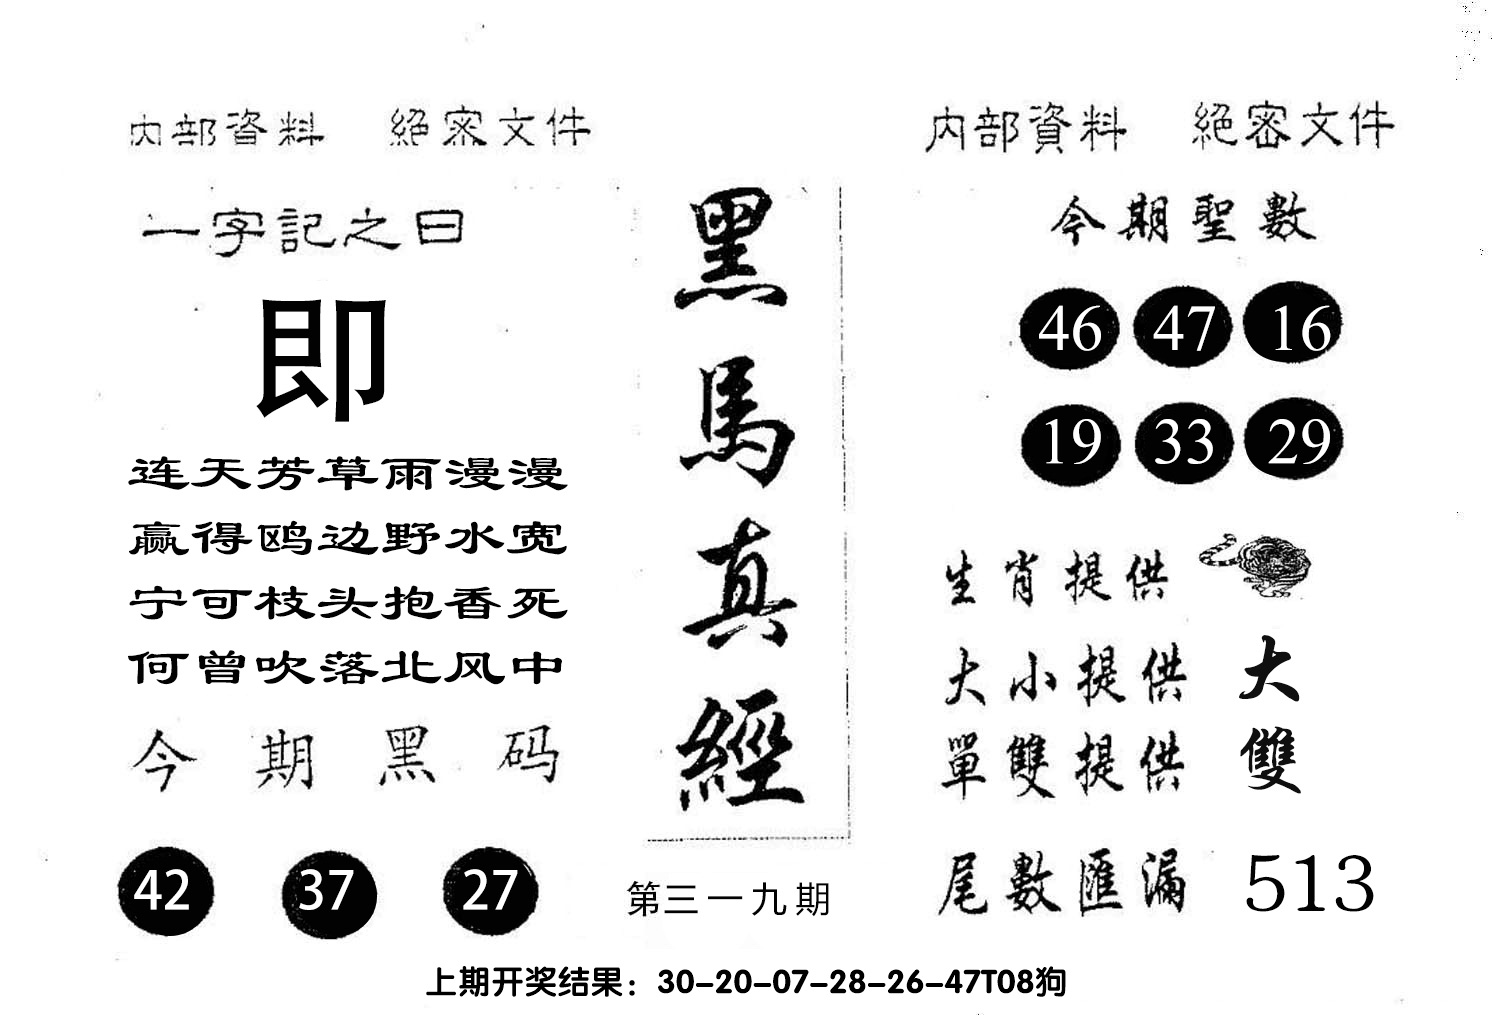 内部資料 絕密文件
一字記之曰
即
连天芳草雨漫漫
赢得鸥边野水宽
宁可枝头抱香死
何曾吹落北风中
今期黑码
42 37 27
黑馬真經
第三一九期
内部資料 絕密文件
今期聖數
46 47 16
19 33 29
生肖提供
大小提供 大
單雙提供 雙
尾數匯漏 513
上期开奖结果：30-20-07-28-26-47T08狗